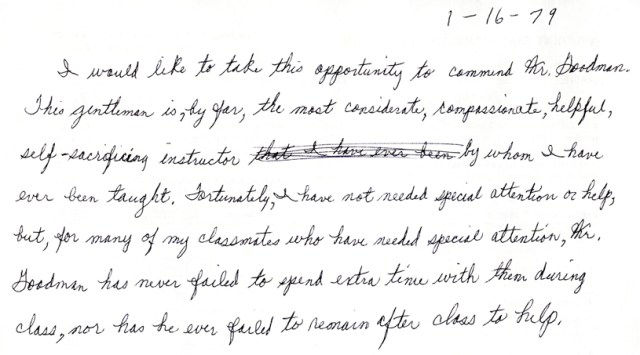 1-16-79
I would like to take this opportunity to commend Mr. Goodman.
This gentleman is, by far, the most considerate, compassionate, helpful,
self-sacrificing instructor that I have ever been by whom I have
ever been taught. Fortunately, I have not needed special attention or help,
but, for many of my classmates who have needed special attention, Mr.
Goodman has never failed to spend extra time with them during
class, nor has he ever failed to remain after class to help.